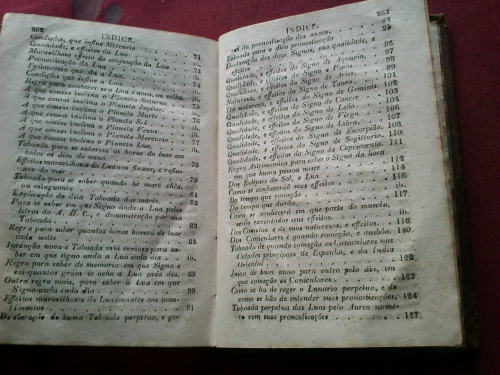 262
INDICE.
Condições, que influe Mercurio. 71
Qualidade, e effeitos da Lua
Maravilhoso effeito da conjunção da Lua
Pronosticação da Lua 73
Fysionomia que dá a Lua. 74
Condições que influe a Lua
Regra para conhecer se a Lua he nova, ou velha.
A que cousas inclina o Planeta Saturno
A que cousas inclina o Planeta Jupiter
A que cousas inclina o Planeta Marte
A que cousas inclina o Planeta Sol
A que cousas inclina o Planeta Venus
A que cousas inclina o Planeta Mercurio
A que cousas inclina o Planeta Lua
Taboada para se saberem as horas da Lua em
todos os dias do anno. 78
Effeitos maravilhosos da Lua nos fluxos, e reflu-
xos do mar 79
Taboada para se saber quando he maré chêa,
ou minguante
Explicação da dita Taboada das marés. 81
Para se saber em que Signo anda a Lua pelas
letras do A. B. C., e demonstração por sua
Taboada.
Regra para saber quantas horas haverá de luar
cada noite
Invenção nova e Taboada mui curiosa para sa-
ber em que signo anda a Lua cada dia.
Regra para saber de memoria em que Signo e
em quantos gráos se acha a Lua cada dia. 89
Outra regra mais, para saber a Lua em que
Signo anda cada dia 90
Effeitos maravilhosos da Lua
timentos 91
Declaração de huma Taboada perpetua, e ge-
INDICE.
263
ral da pronosticação dos annos. 92
Taboada para a dita pronosticação 95
Declaração dos doze Signos, sua qualidade, e
effeitos
Qualidade, e effeitos do Signo de Aquario.
Qualidade, e effeitos do Signo de Piscis.
Qualidade, e effeitos do Signo de Aries.
Natureza, e effeitos do Signo de Tauro
Da natureza, e effeitos do Signo de Geminis.
Qualidade, e effeitos do Signo de Cancer.
Qualidade, e effeitos do Signo de Leão
Qualidade, e effeitos do Signo de Virgo.
Qualidade, e effeitos do Signo de Libra.
Qualidade, e effeitos do Signo de Escorpião.
Qualidade, e effeitos do Signo de Sagittario.
Qualidade, e effeitos do Signo de Capricornio. 111
Regra Astronomica para saber o Signo da hora
em que huma pessoa nasce 112
Dos Eclipses do Sol, e Lua 114
Como se conhecerão seus effeitos. ib.
Do tempo que começão. 115
Do tempo que durão. ib.
Como se conhecerá em que parte do mundo,
serão executados seus effeitos.
Dos Cometas e de sua natureza, e effeitos. ib.
Dos Caniculares e quando começão, e acabão. 118
Taboada de quando começão os Caniculares nas
Cidades principaes de Espanha, e da India
Oriental
Juizo de hum anno para outro pelo dia, em
que começão os Caniculares 122
Como se ha de reger o Lunario perpetuo, e de
como se hão de entender suas pronosticações. 124
Taboada perpetua das Luas pelo Aureo nume-
ro com suas pronosticações 127